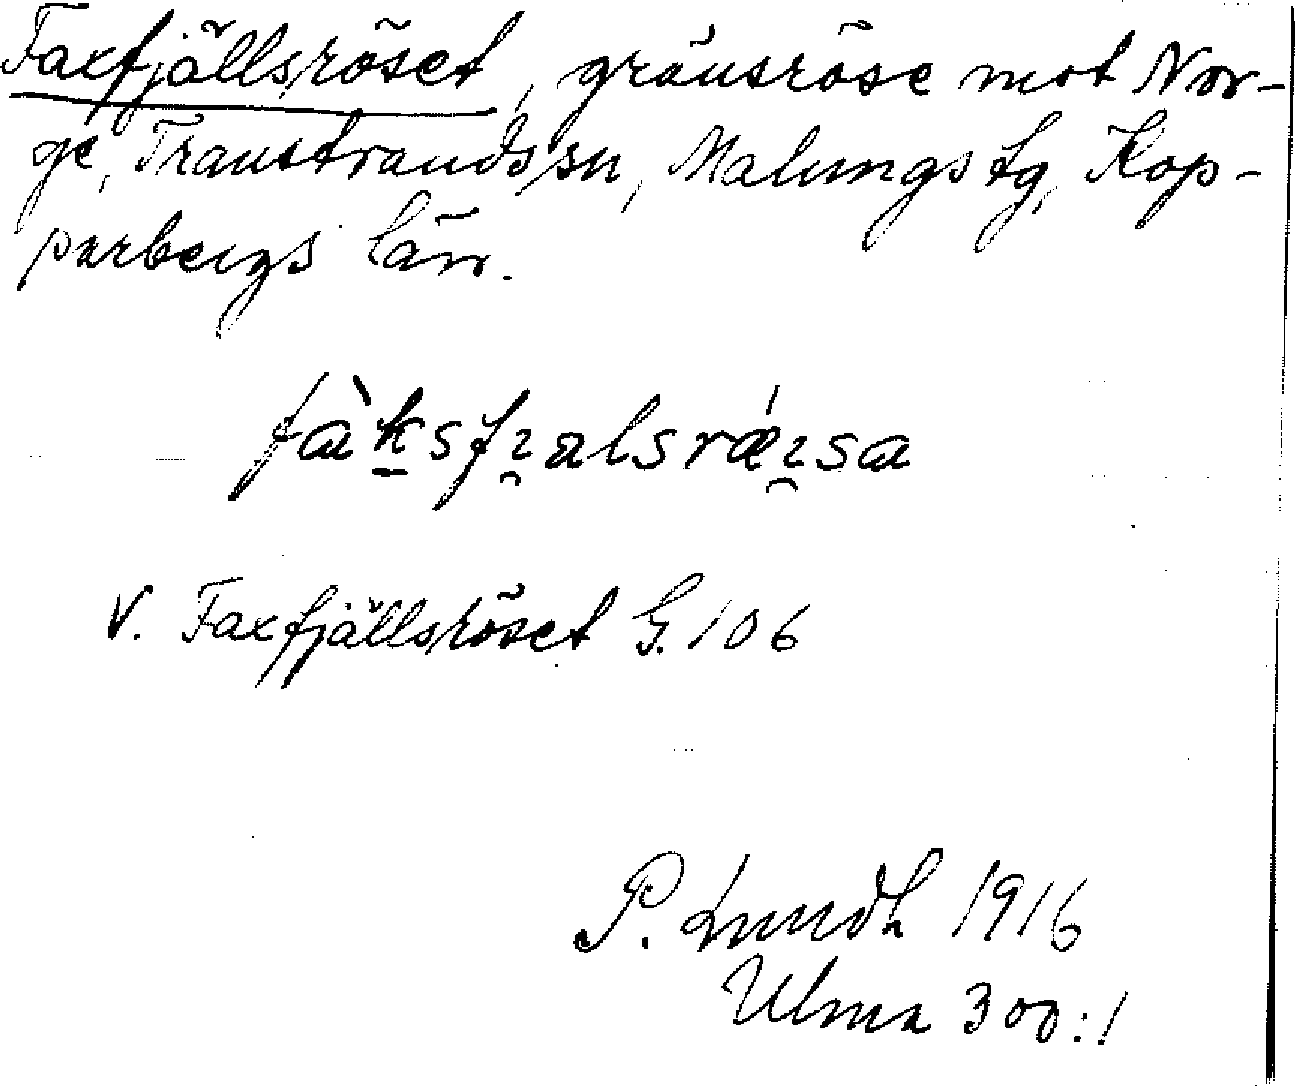 Faxfjällsröset, gränsröse mot Nor-
ge, Transtrands sn, Malungs tg, Kop-
parbergs län.
fàksfɪ̯alsrǽɪ̯sa
V. Faxfjällsröset G. 106
P. Lundh 1916
Ulma 300:1